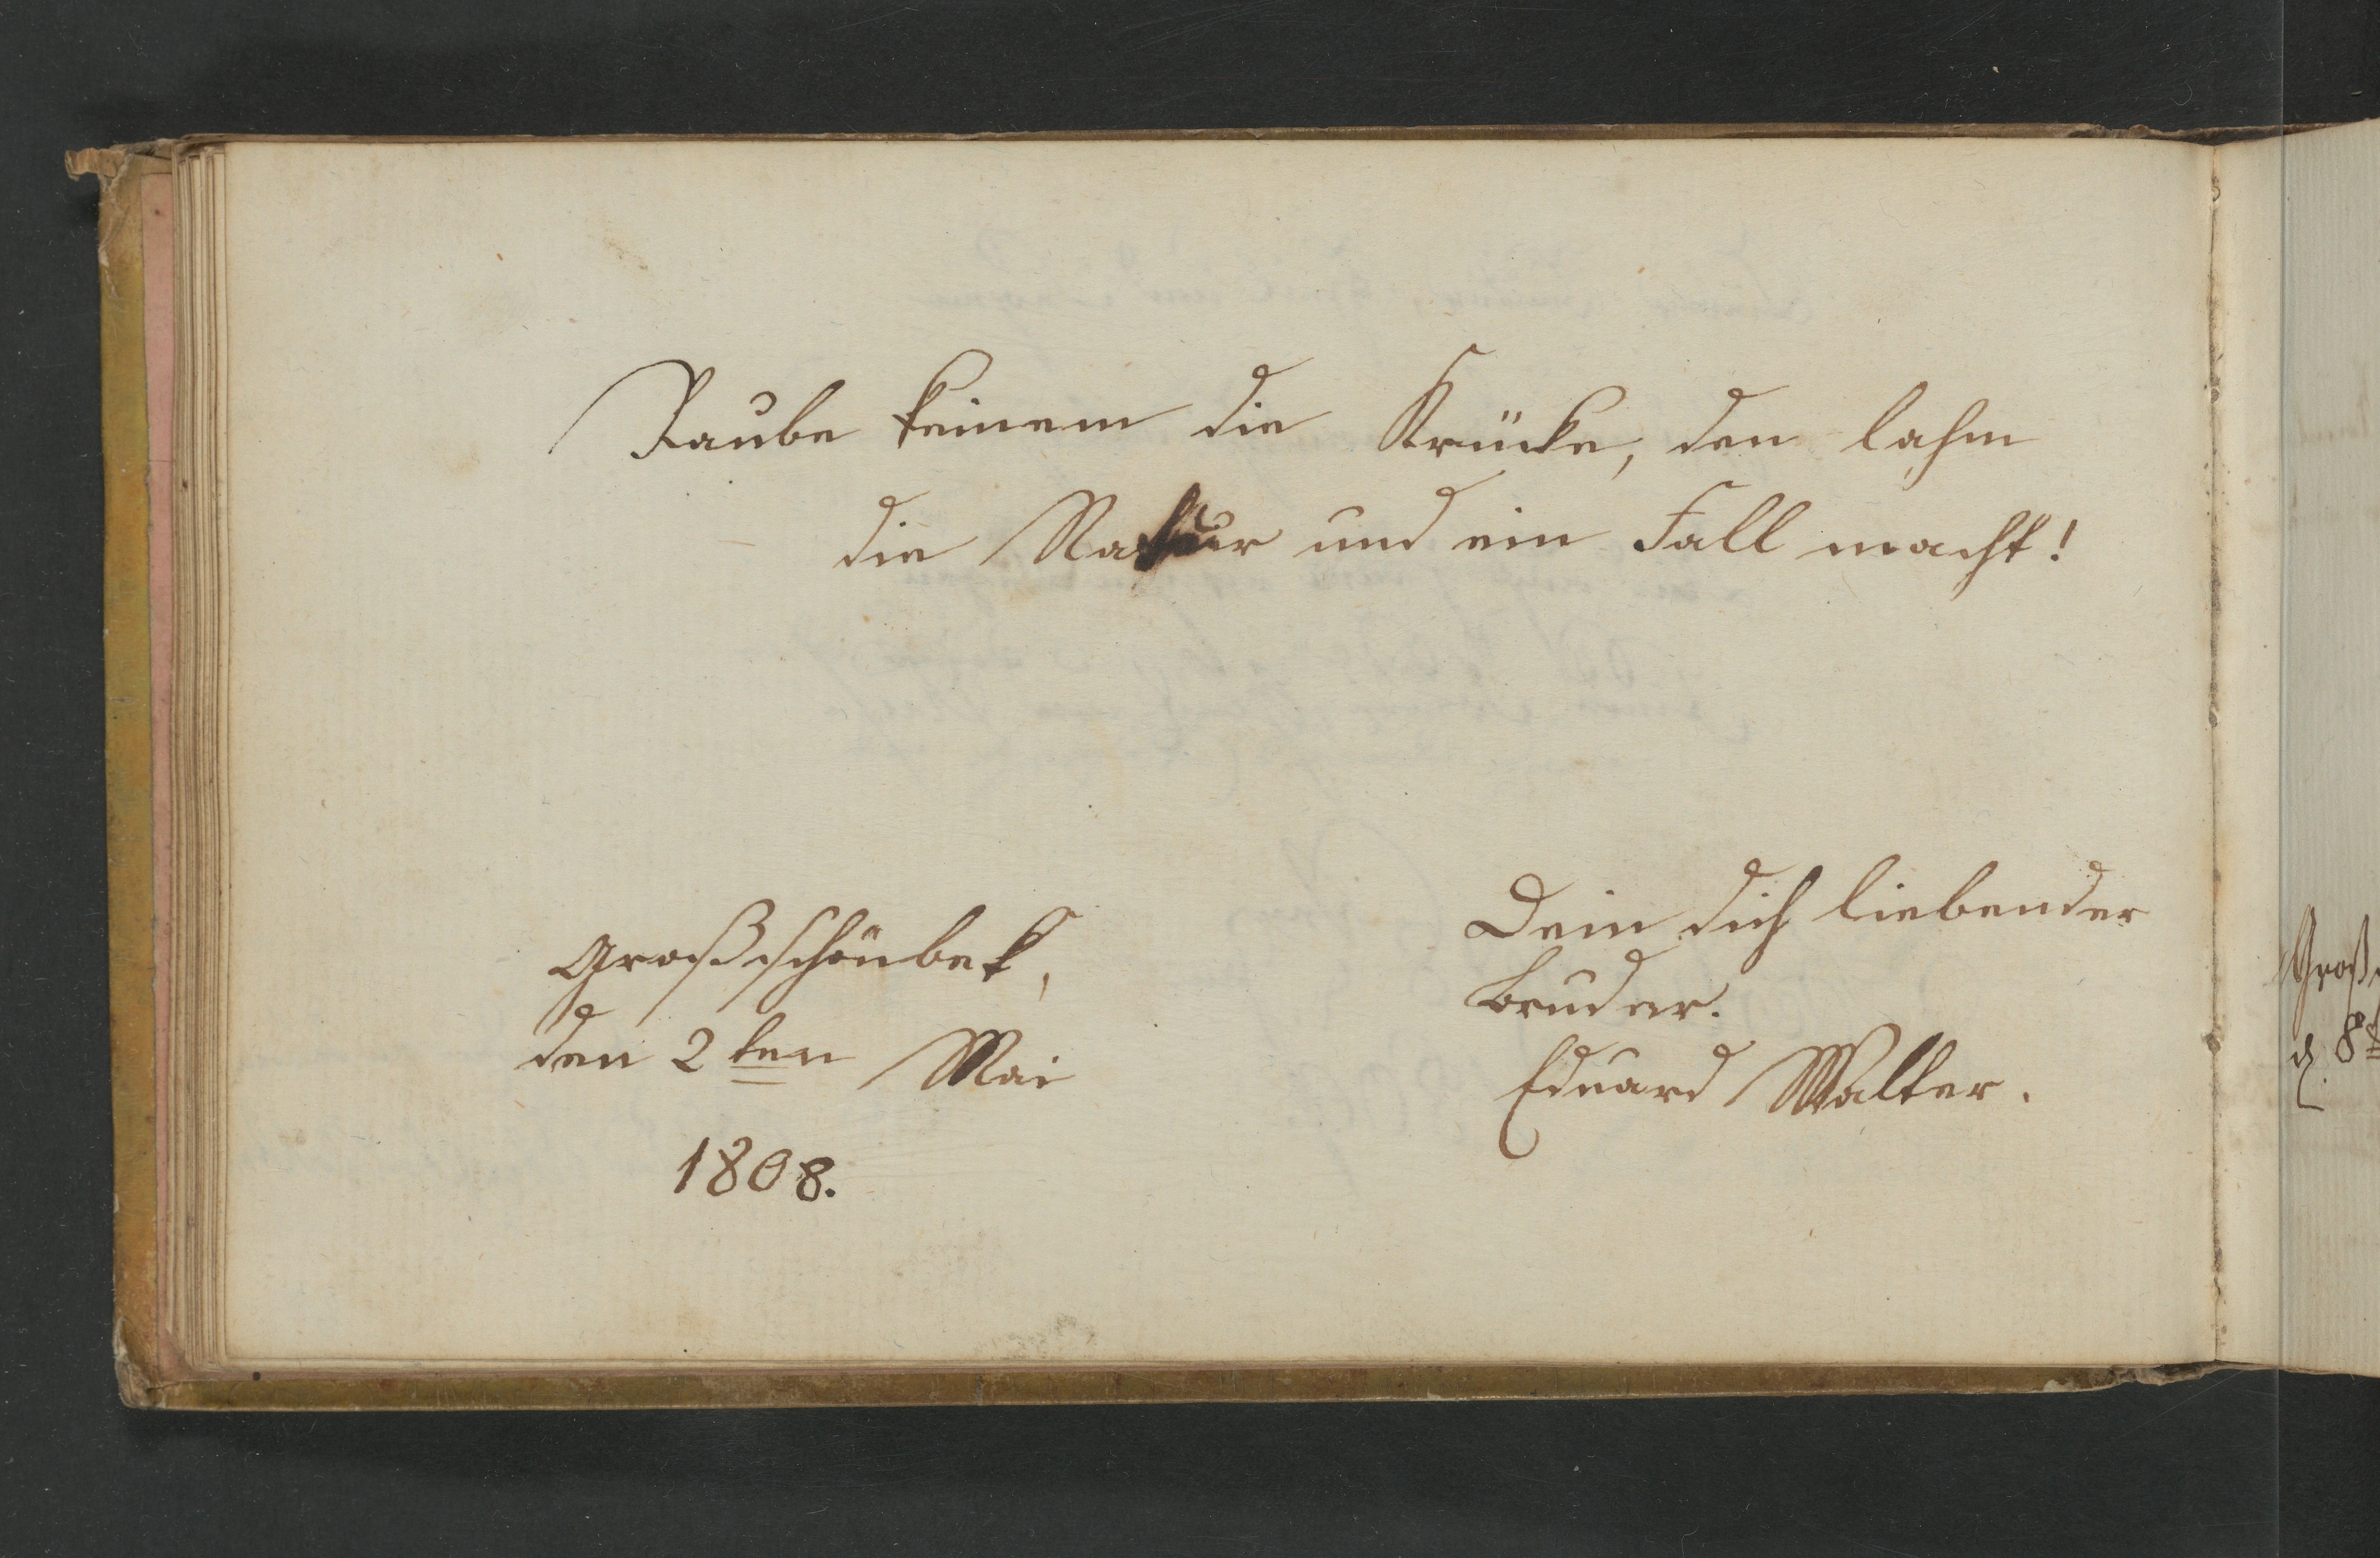 Raube keinem die Krücke, den lahm
die Natur und ein Fall macht!
Großschönbek,
den 2ten Mai
1808.
Dein dich liebender
Bruder.
Eduard Walter.
Groß
d. 8t